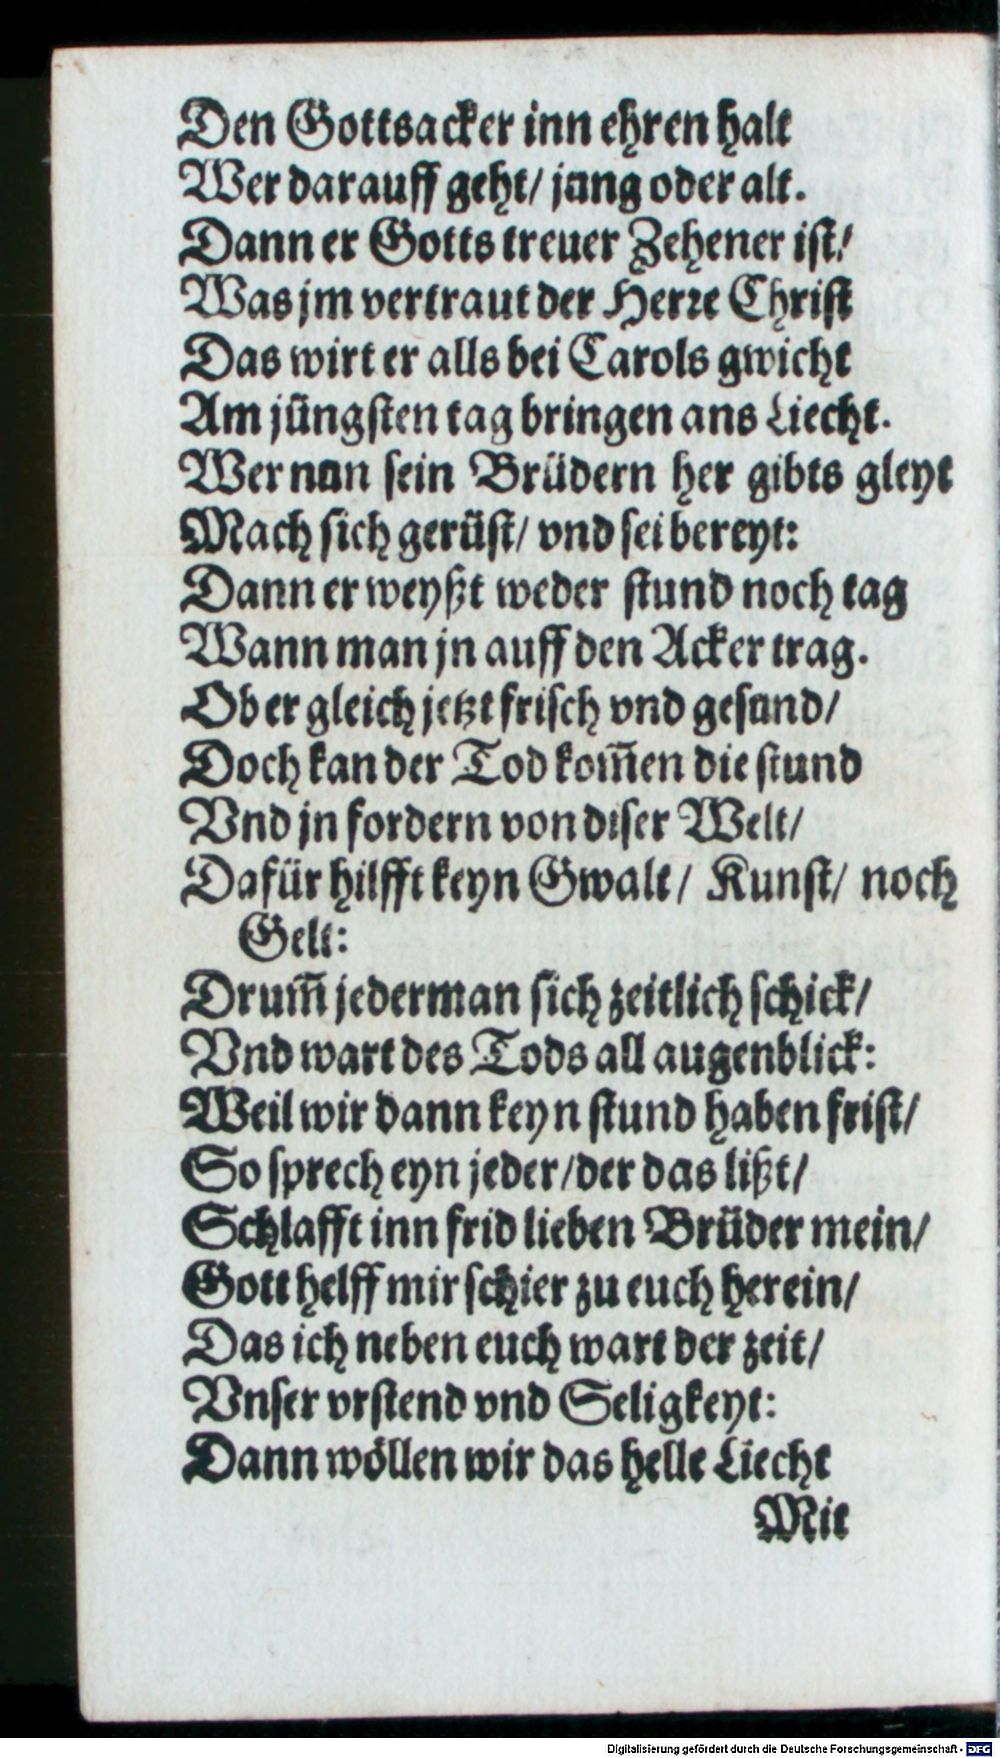 Den Gottsacker inn ehren halt
Wer darauff geht/ jung oder alt.
Dann er Gotts treuer Zehener ist/
Was jm vertraut der Herre Christ
Das wirt er alls bei Carols gwicht
Am jüngsten tag bringen ans Liecht.
Wer nun sein Brüdern her gibts gleyt
Mach sich gerüst/ vnd sei bereyt:
Dann er weyßt weder stund noch tag
Wann man jn auff den Acker trag.
Ob er gleich jetzt frisch vnd gesund/
Doch kan der Tod kom̃en die stund
Vnd jn fordern von diser Welt/
Dafür hilfft keyn Gwalt/ Kunst/ noch
Gelt:
Drum̃ jederman sich zeitlich schick/
Vnd wart des Tods all augenblick:
Weil wir dann keyn stund haben frist/
So sprech eyn jeder/der das lißt/
Schlafft inn frid lieben Brüder mein/
Gott helff mir schier zu euch herein/
Das ich neben euch wart der zeit/
Vnser vrstend vnd Seligkeyt:
Dann wöllen wir das helle Liecht
Mit
Digitalisierung gefördert durch die Deutsche Forschungsgemeinschaft - DFG